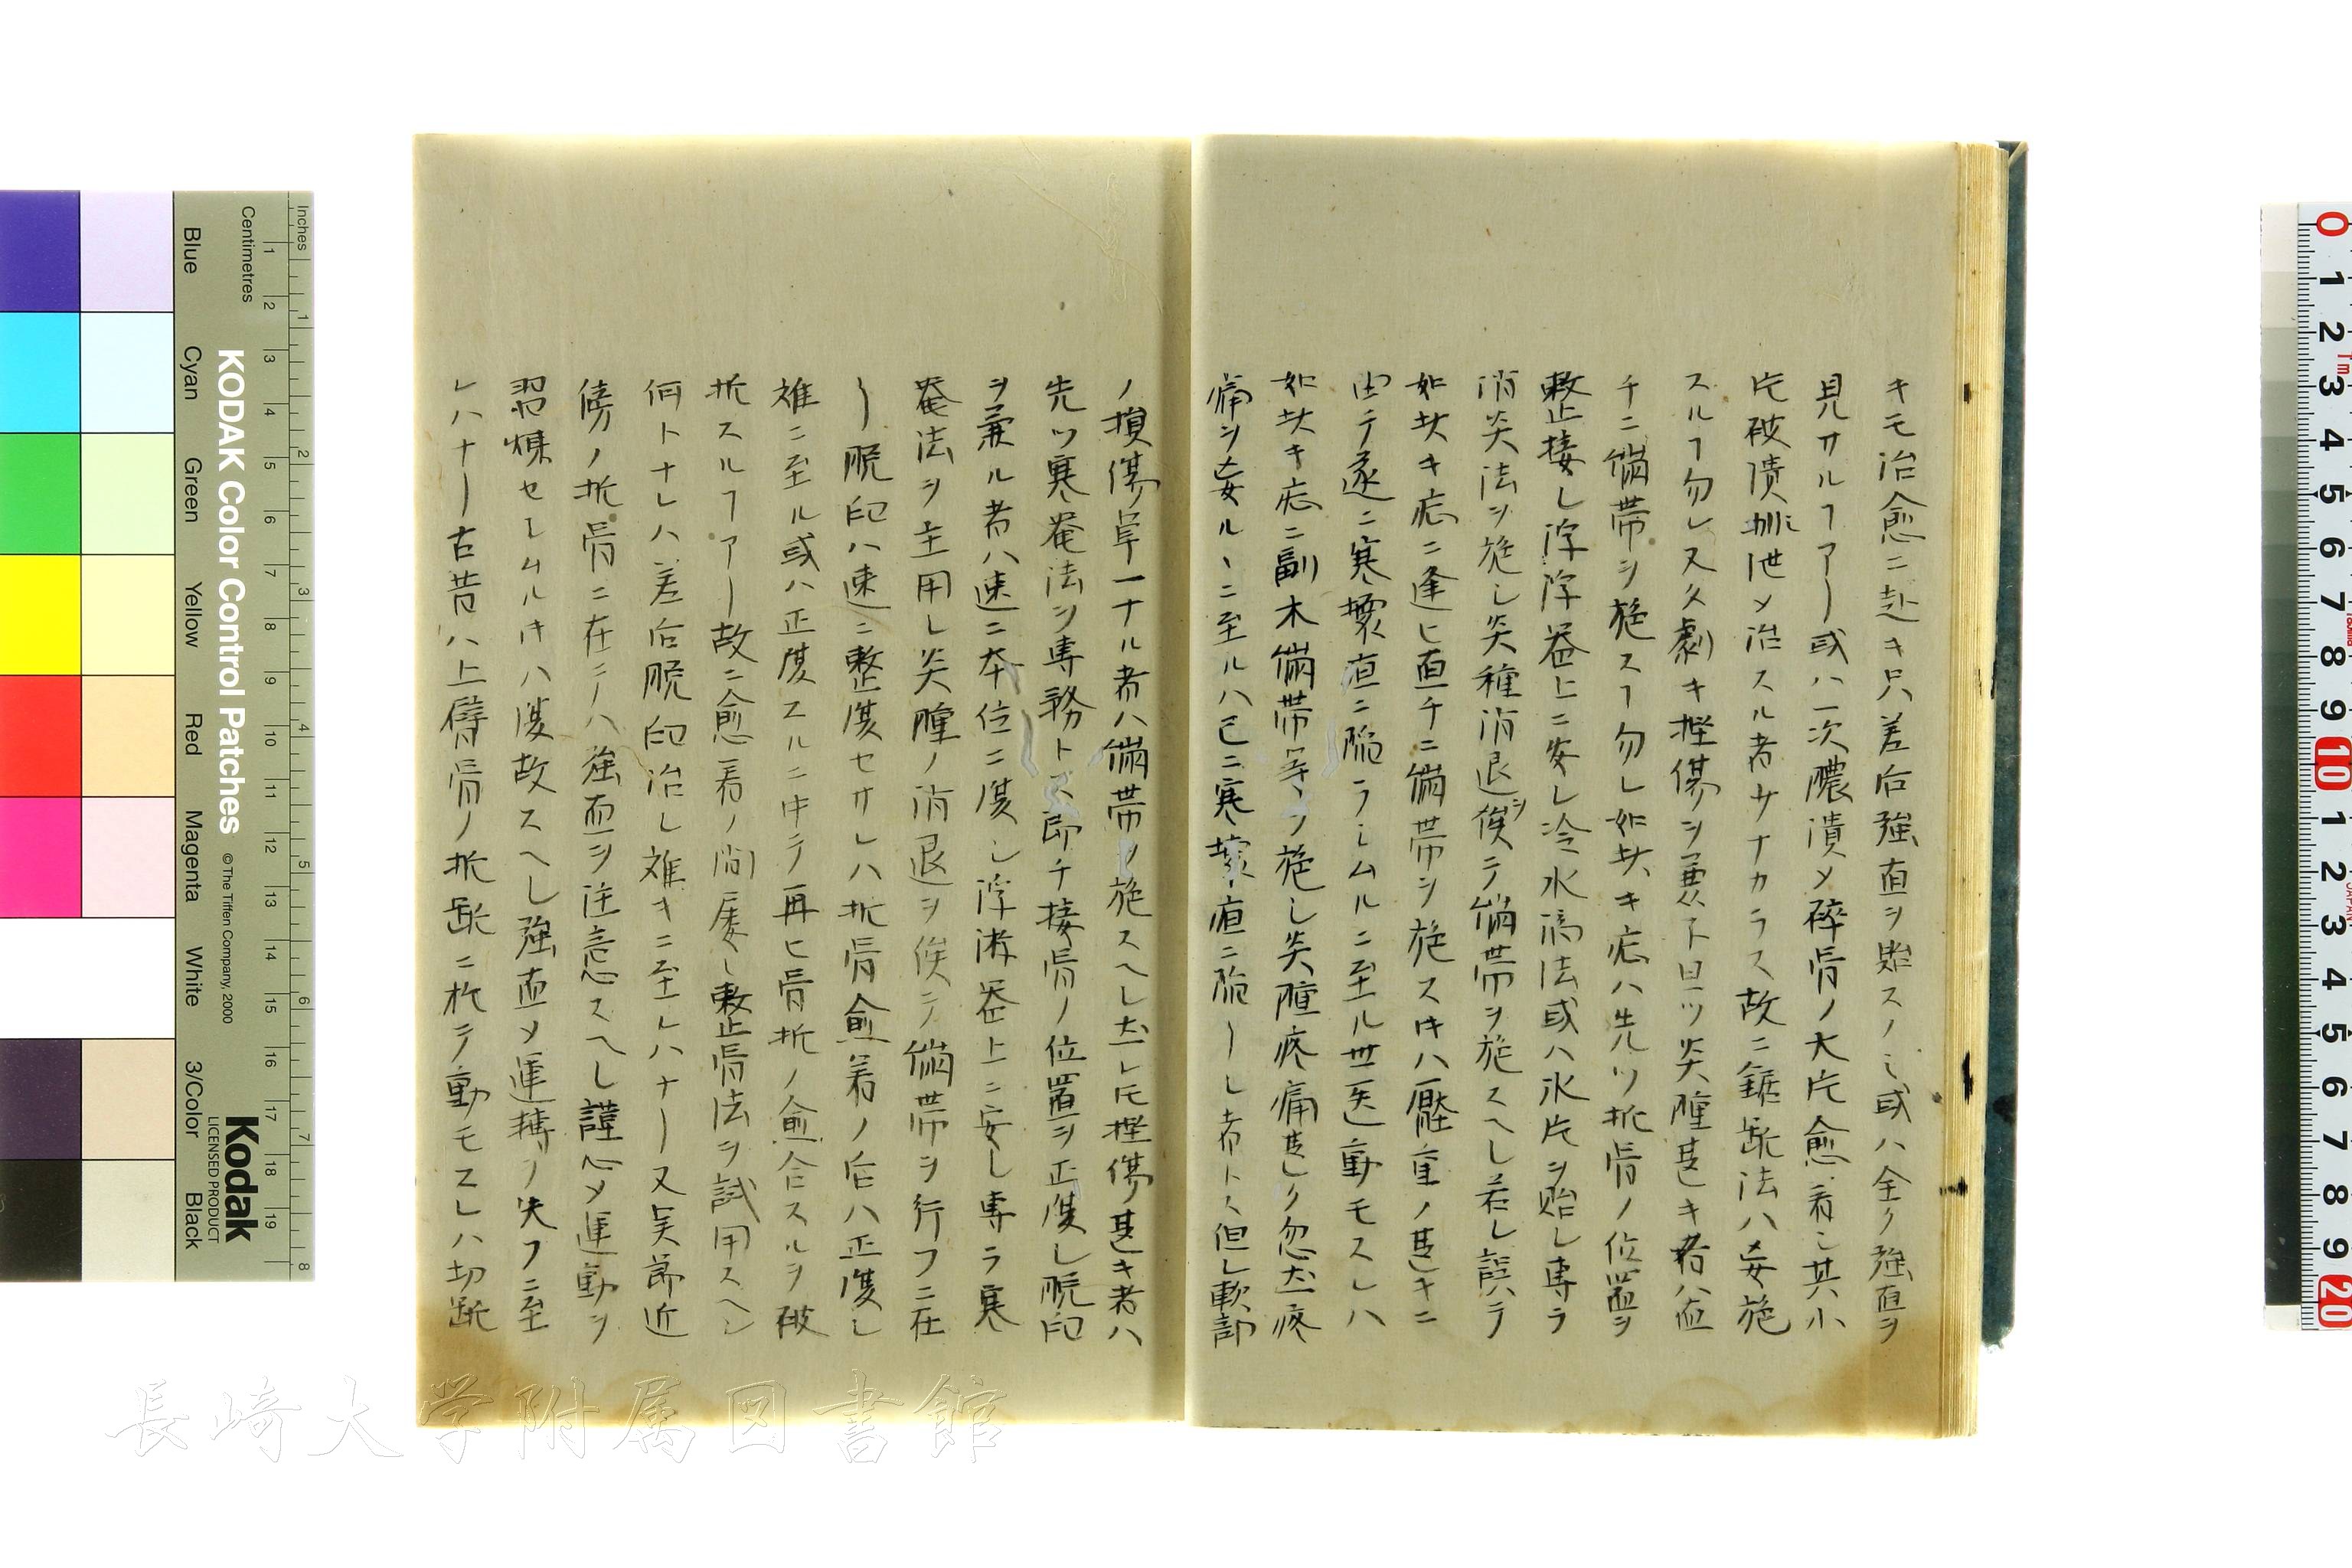 キモ治愈ニ赴キ只差后強直ヲ貽スノミ或ハ全ク強直ヲ
見サルヿアリ或ハ一次膿潰メ碎骨ノ大片愈着シ其小
片破潰 泄メ治スル者サナカラス故ニ鋸断法ハ妄施
スルヿ勿レ又久劇キ挫傷ヲ兼ト且ツ炎腫甚キ者ハ直
チニ繃帯ヲ施スヿ勿レ如此キ症ハ先ツ折骨ノ位置ヲ
整接シ浮 器上ニ安シ冷水 法或ハ氷片ヲ貽シ専ラ
消炎法ヲ施シ炎種消退俟シテ繃帯ヲ施スヘシ若シ誤テ
如此キ症ニ逢ヒ直チニ繃帯ヲ施スキハ壓重ノ甚キニ
由テ遂ニ寒壊疽ニ陥ラシムルニ至ル世医動モスレハ
如此キ症ニ副木繃帯等ヲ施シ炎腫疼痛甚シク忽然疼
痛ヲ妄ルヽニ至ルハ已ニ寒壊疽ニ陥リシ者トス但シ軟部
ノ損傷阜一ナル者ハ繃帯ヲ施スヘシ然レ𪜈挫傷甚キ者ハ
先ツ寒罨法ヲ専務トス即チ接骨ノ位置ヲ正復シ脱臼
ヲ兼ル者ハ速ニ本位ニ復シ浮游器上ニ安シ専ラ寒
罨法ヲ主用シ炎腫ノ消退ヲ俟テ繃帯ヲ行フニ在
リ脱臼ハ速ニ整復セサレハ折骨愈着ノ后ハ正復シ
難ニ至ル或ハ正復スルニ中テ再ヒ骨折ノ愈合スルヲ破
折スルヿアリ故ニ愈着ノ間屡シ整骨法ヲ試用スヘシ
何トナレハ差后脱臼治シ難キニ至レハナリ又関節近
傍ノ折骨ニ在テハ強直ヲ注意スヘシ謹心メ運動ヲ
習煉セシムルキハ復故スヘシ強直メ運轉ヲ失フニ至
レハナリ古昔ハ上膊骨ノ折断ニ於テ動モスレハ切断
Inches
Centimetres
KODAK Color Control Patches
© The Tiffen Company, 2000
Kodak
LICENSED PRODUCT
Blue
Cyan
Green
Yellow
Red
Magenta
White
3/Color
Black
長崎大学附属図書館